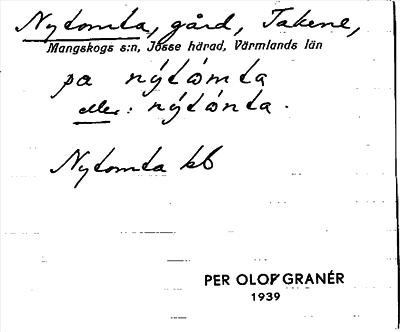 Nytomta, gård, Takene,
Mangskogs s:n, Jösse härad, Värmlands län
pa nýtòmta
eller: nýtònta.
Nytomta kb
PER OLOF GRANÉR
1939